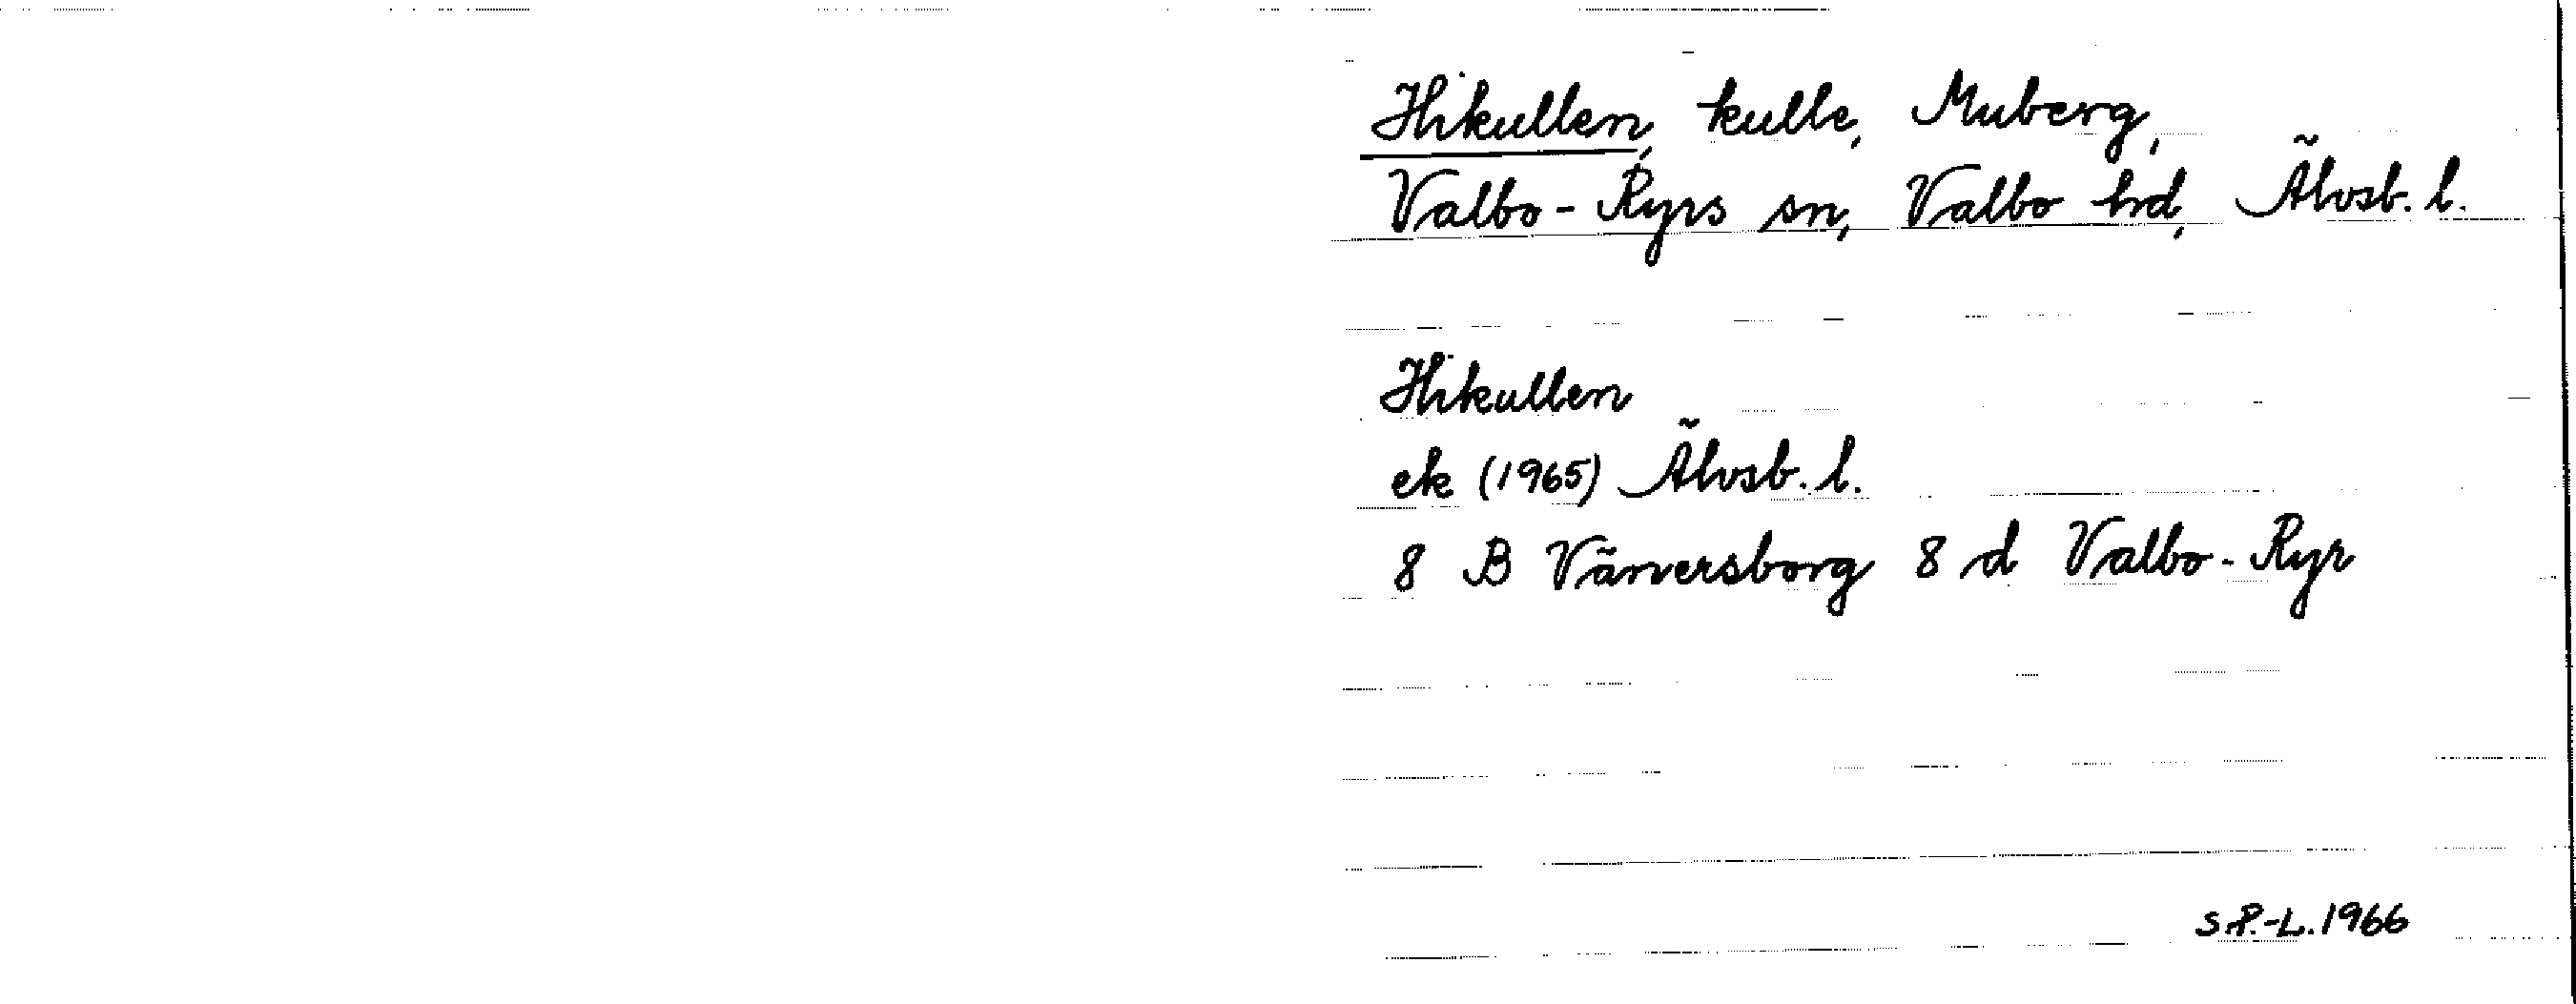 Hikullen, kulle, Muberg,
Valbo-Ryrs sn, Valbo hd, Älvsb. l.
Hikullen
ek (1965) Älvsb. l.
8 B Vänersborg 8 d Valbo-Ryr
S.P.-L. 1966